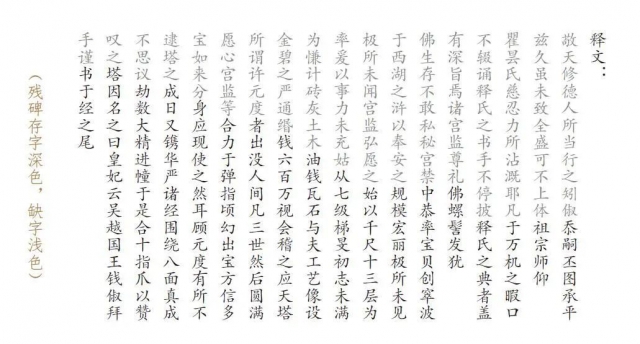 释文：
敬天修德人所当行之矧俶忝嗣丕图承平
兹久虽未致全盛可不上体祖宗师仰
瞿昙氏慈忍力所沾溉耶凡于万机之暇口
不辍诵释氏之书手不停披释氏之典者盖
有深旨焉诸宫监尊礼佛螺髻发犹
佛生存不敢私秘宫禁中恭率宝贝创窣波
于西湖之浒以奉安之规模宏丽极所未见
极所未闻宫监弘愿之始以千尺十三层为
率爰以事力未充姑从七级梯旻初志未满
为慊计砖灰土木油钱瓦石与夫工艺像设
金碧之严通缗钱六百万视会稽之应天塔
所谓许元度者出没人间凡三世然后圆满
愿心宫监等合力于弹指顷幻出宝方信多
宝如来分身应现使之然耳顾元度有所不
逮塔之成日又镌华严诸经围绕八面真成
不思议劫数大精进幢于是合十指爪以赞
叹之塔因名之曰皇妃云吴越国王钱俶拜
手谨书于经之尾
（残碑存字深色，缺字浅色）